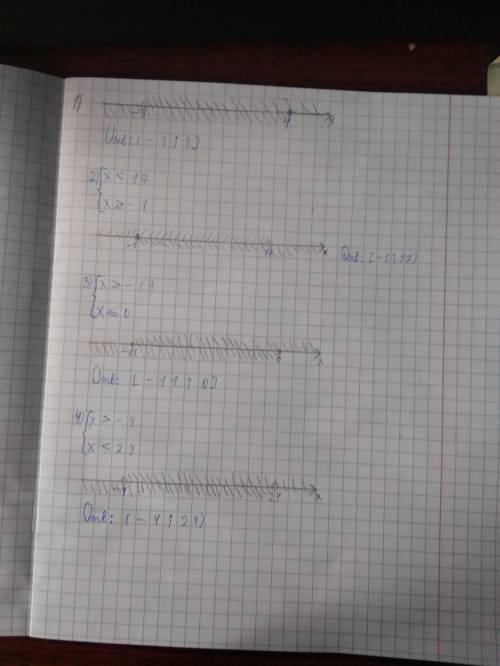 1)
-3 x
Отв: (-3; 4]
2) { x < 17
x ≥ -1
-1 17 x Отв: [-1; 17)
3) { x ≥ -11
x ≤ 0
-11 0 x
Отв: [-11; 0]
4) { x > -4
x < 24
-4 24 x
Отв: (-4; 24)